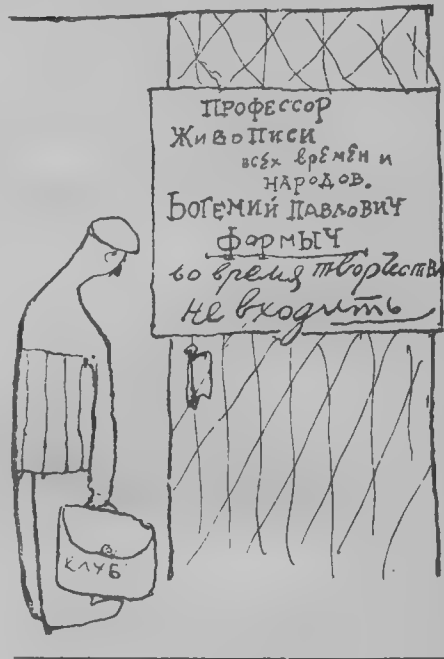 ПРОФЕССОР
ЖИВОПИСИ
ВСЕХ ВРЕМЕН И
НАРОДОВ.
БОГЕМИЙ ПАВЛОВИЧ
ФОРМЫЧ
во время творчества
не входить
КЛУБ